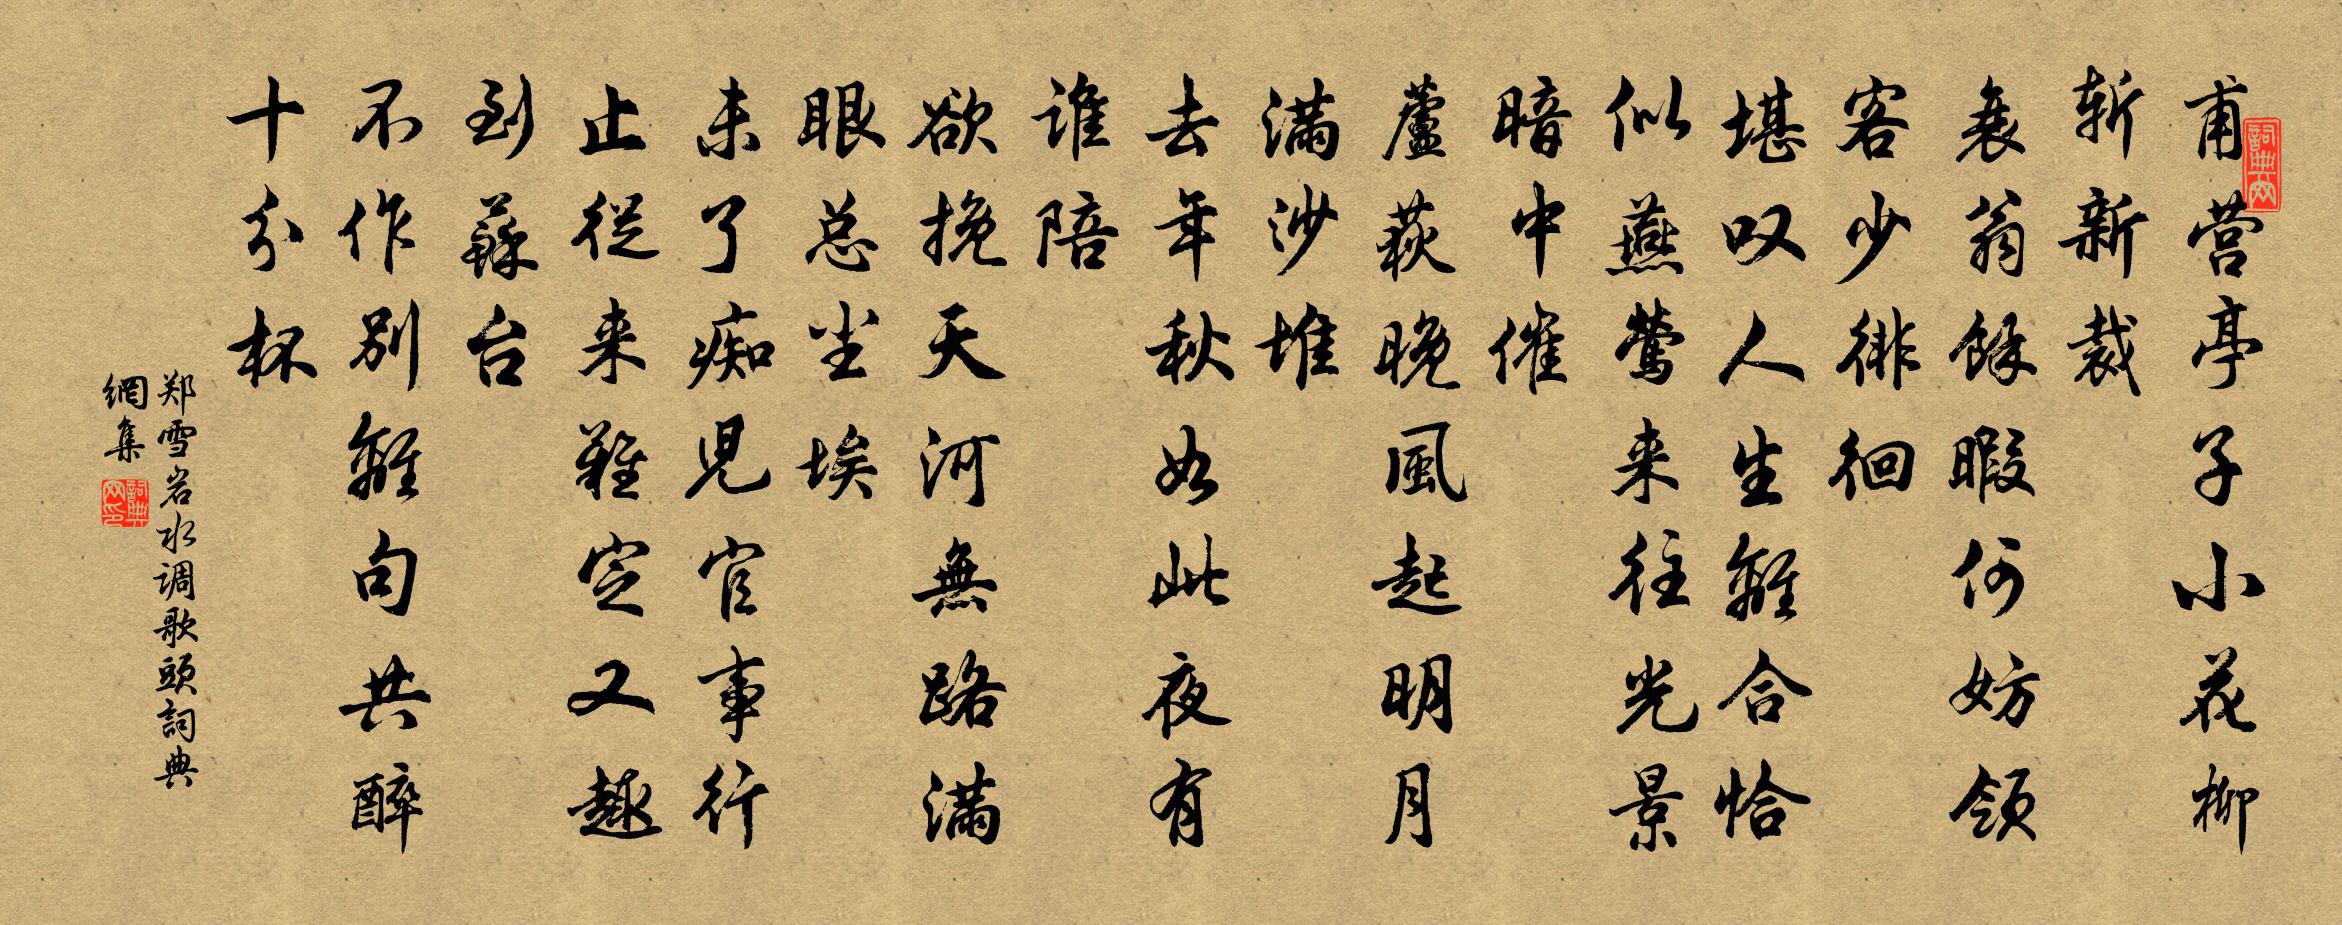 甫营亭子小花柳
斩新裁
衰翁馀暇何妨领
客少徘徊
堪叹人生離合恰
似燕莺来往光景
暗中催
蘆荻晚風起明月
满沙堆
去年秋如此夜有
谁陪
欲挽天河無路满
眼总尘埃
未了痴児官事行
止從来難定又趣
到蘇台
不作别離句共醉
十分杯
郑雪岩水调歌頭詞典
網集
詞典网
詞典网印